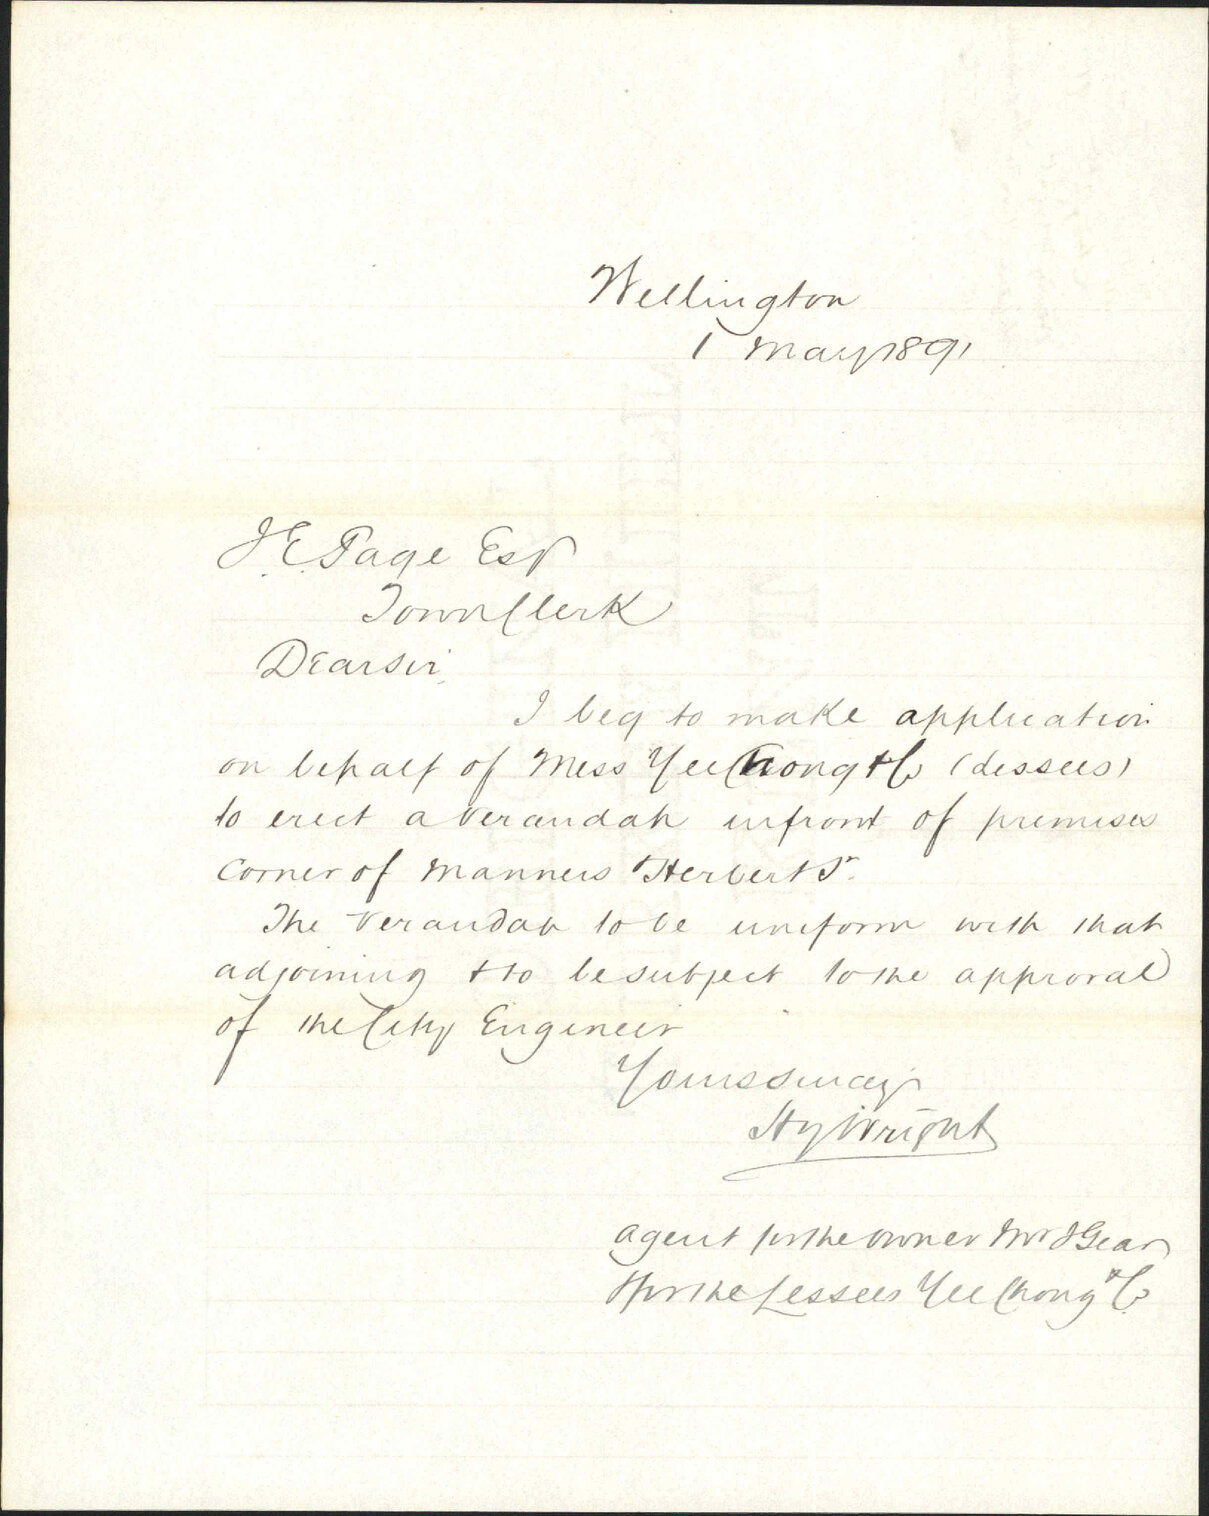 Wellington
1 May 1891
J.E. Page Esq
Town Clerk
Dear Sir
I beg to make application
on behalf of Mess Yee Chong & Co (Lessees)
to erect a verandah in front of premises
corner of Manners & Herbert St.
The verandah to be uniform with that
adjoining & to be subject to the approval
of the City Engineer
Yours sincerely
Hy Wright
Agent for the owner Mr J Gear
& for the Lessees Yee Chong & Co